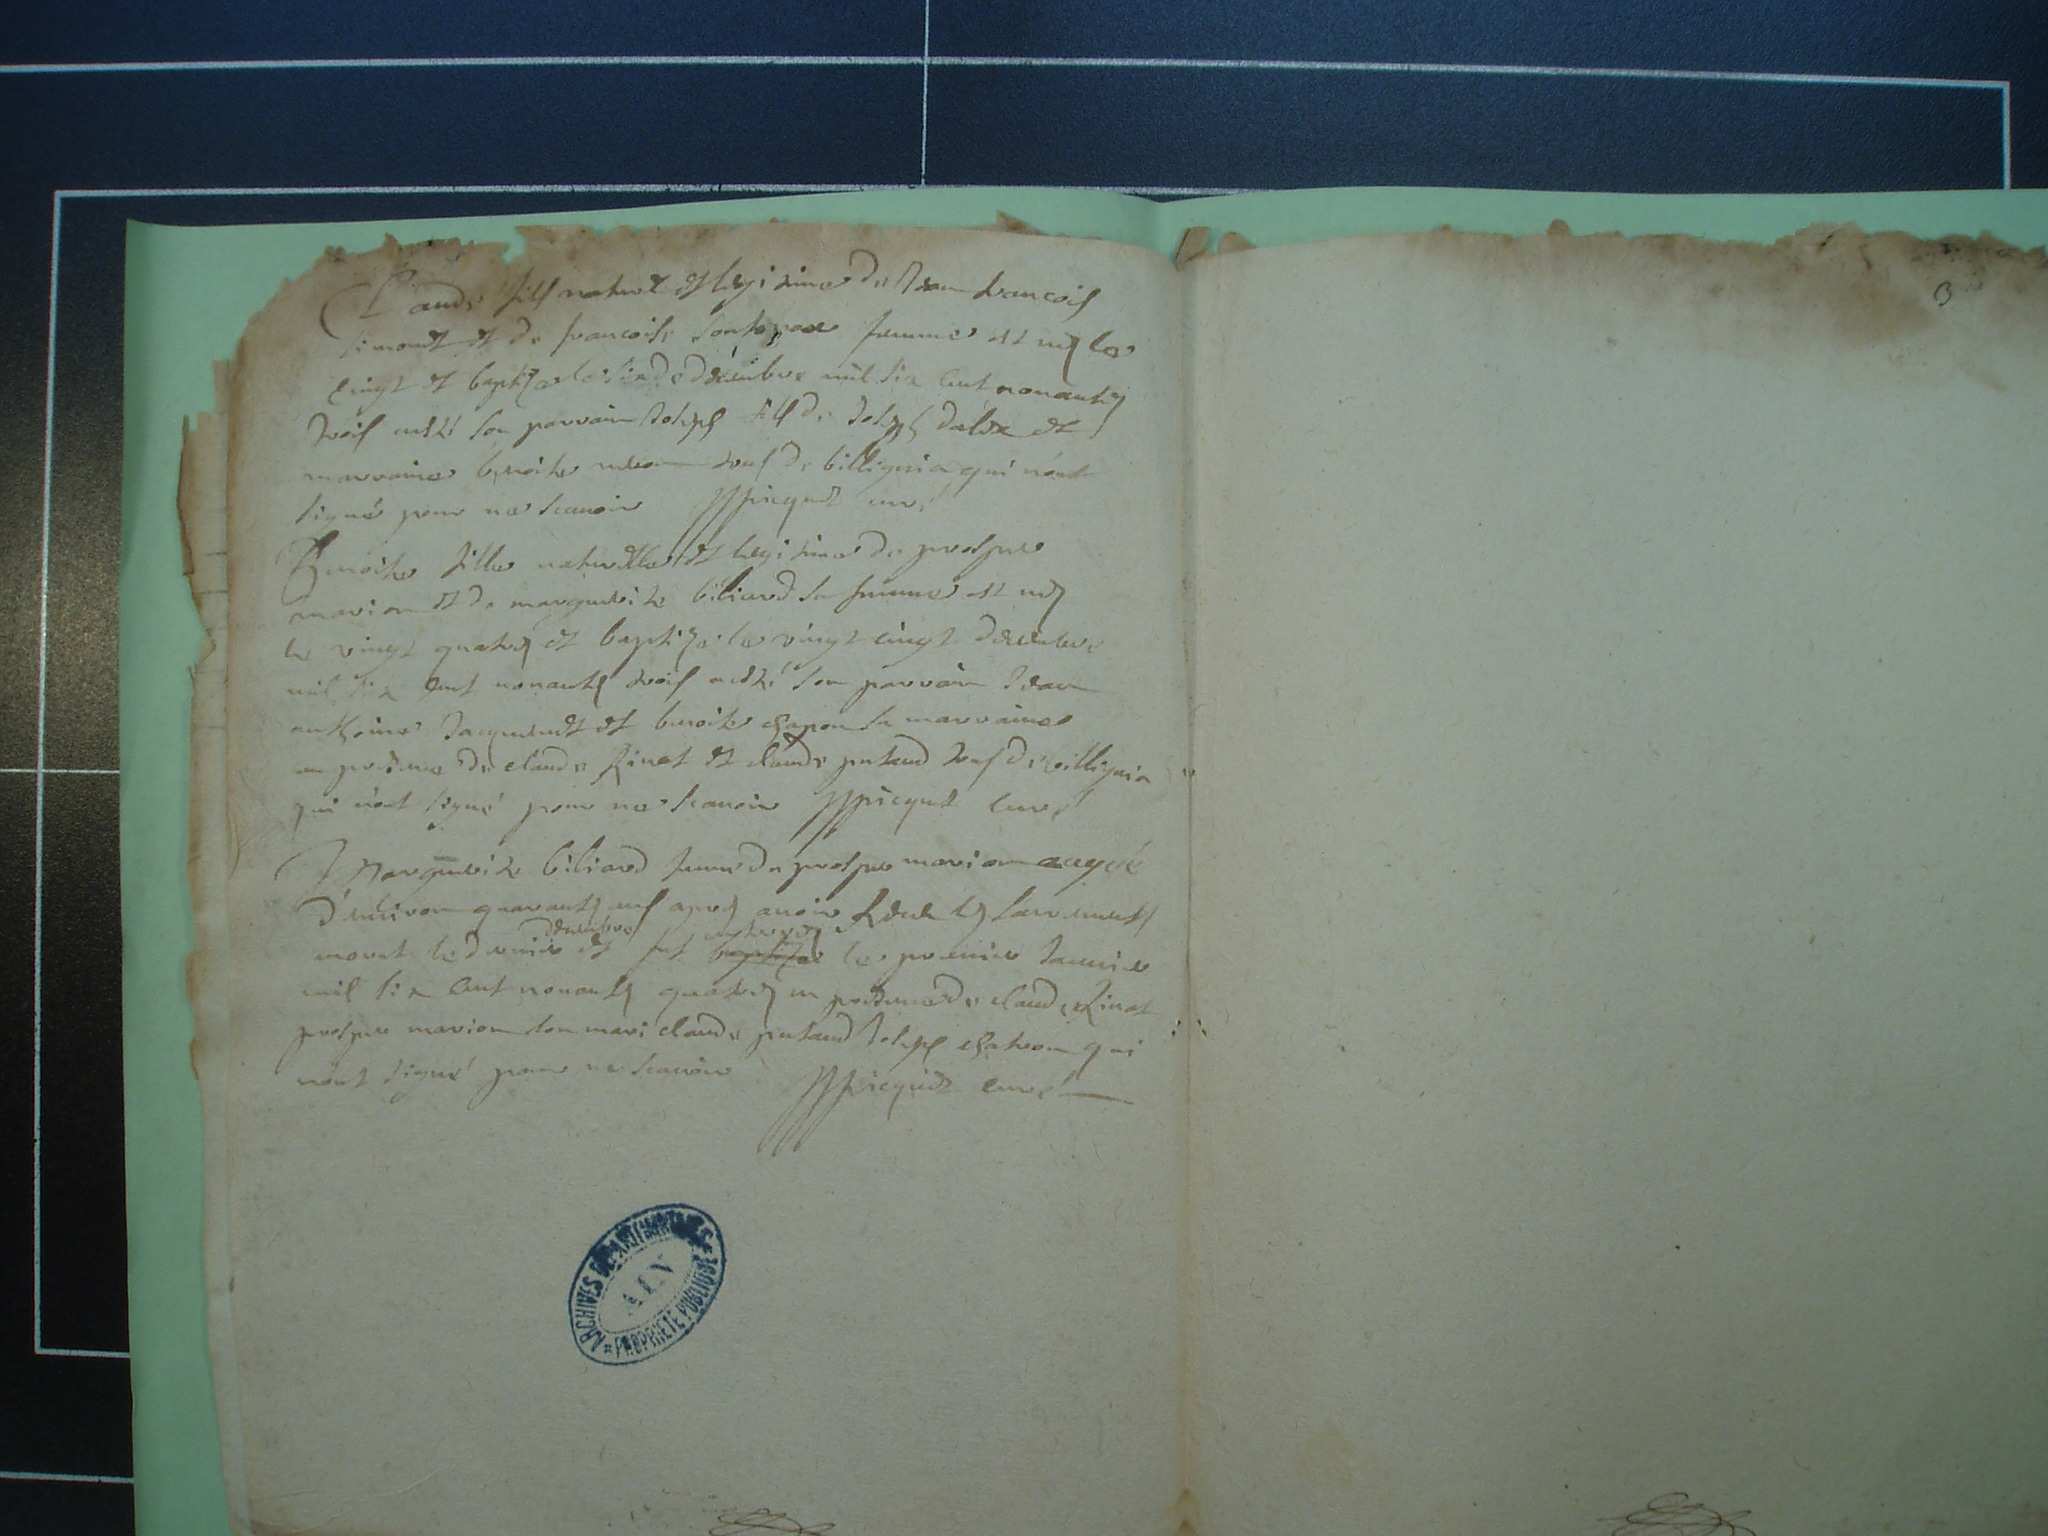 Claude fils naturel et legitime de Jean francois
simonet et de francoise femme est né le
cinqt et baptize le six de decembre mil six cent nonante
trois a esté son parrain Joseph fils de Joseph et
marraine benoite tous de billignia qui n'ont
signé pour ne scauoir Picquet curé
Benoite fille naturelle et legitime de prospere
marion et de marguerite biliard sa femme est née
le vingt quatre et baptizé le vingt cinqt decembre
mil six cent nonante trois a esté son parrain Jean
anthoine Jacquemet et benoite chapon sa marraine
en presence de claude Rinet et claude putaud tous de billignia
qui n'ont signé pour ne scauoir Picquet curé
Marguerite biliard femme de prospere marion aagée
d'enuiron quarante ans apres auoir Receu les sacrements
mourut le dernier decembre et fut enterrée le premier Januier
mil six cent nonante quatre en presence de claude Rinet
prospere marion son mari claude putaud Joseph chatron qui
n'ont signé pour ne scauoir Picquet curé
ARCHIVES DEPARTEMENTALES
AIN
PROPRIETE PUBLIQUE
3